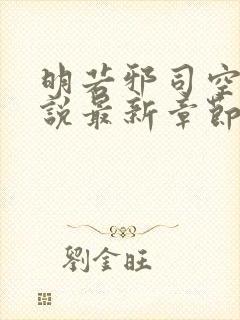 明若邪司空
說最新章節
劉金旺